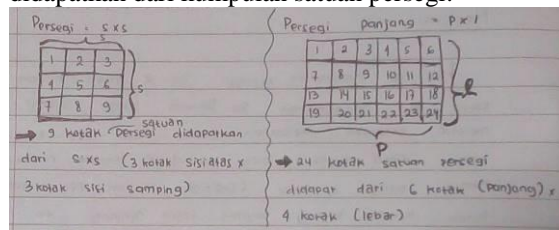 didapatkan dari kumpulan satuan persegi.
Persegi = s x s
s
1 2 3
4 5 6
7 8 9
s
→ 9 kotak satuan persegi didapatkan
dari s x s (3 kotak sisi atas x
3 kotak sisi samping)
Persegi panjang = p x l
1 2 3 4 5 6
7 8 9 10 11 12
13 14 15 16 17 18
19 20 21 22 23 24
l
P
→ 24 kotak satuan persegi
didapat dari 6 kotak (panjang) x
4 kotak (lebar)